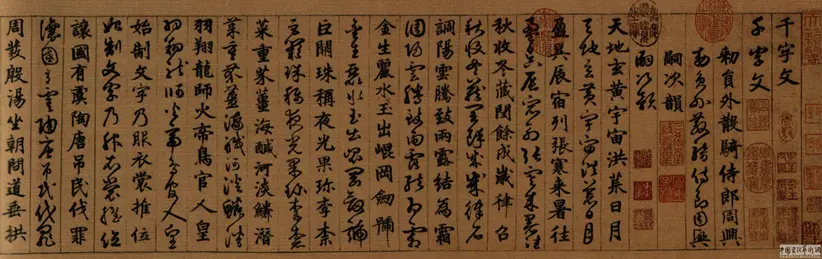 千字文
千字文
勑員外散騎侍郎周興
勑員外散騎侍郎周興
嗣次韻
嗣次韻
天地玄黃宇宙洪荒日月
天地玄黃宇宙洪荒日月
盈昃辰宿列張寒来暑往
盈昃辰宿列張寒来暑往
秋收冬藏閏餘成歲律召
秋收冬藏閏餘成歲律召
調陽雲騰致雨露結為霜
調陽雲騰致雨露結為霜
金生麗水玉出崐岡劒號
金生麗水玉出崐岡劒號
巨闕珠稱夜光果珍李柰
巨闕珠稱夜光果珍李柰
菜重芥薑海鹹河淡鱗潛
菜重芥薑海鹹河淡鱗潛
羽翔龍師火帝鳥官人皇
羽翔龍師火帝鳥官人皇
始制文字乃服衣裳推位
始制文字乃服衣裳推位
讓國有虞陶唐弔民伐罪
讓國有虞陶唐弔民伐罪
周發殷湯坐朝問道垂拱